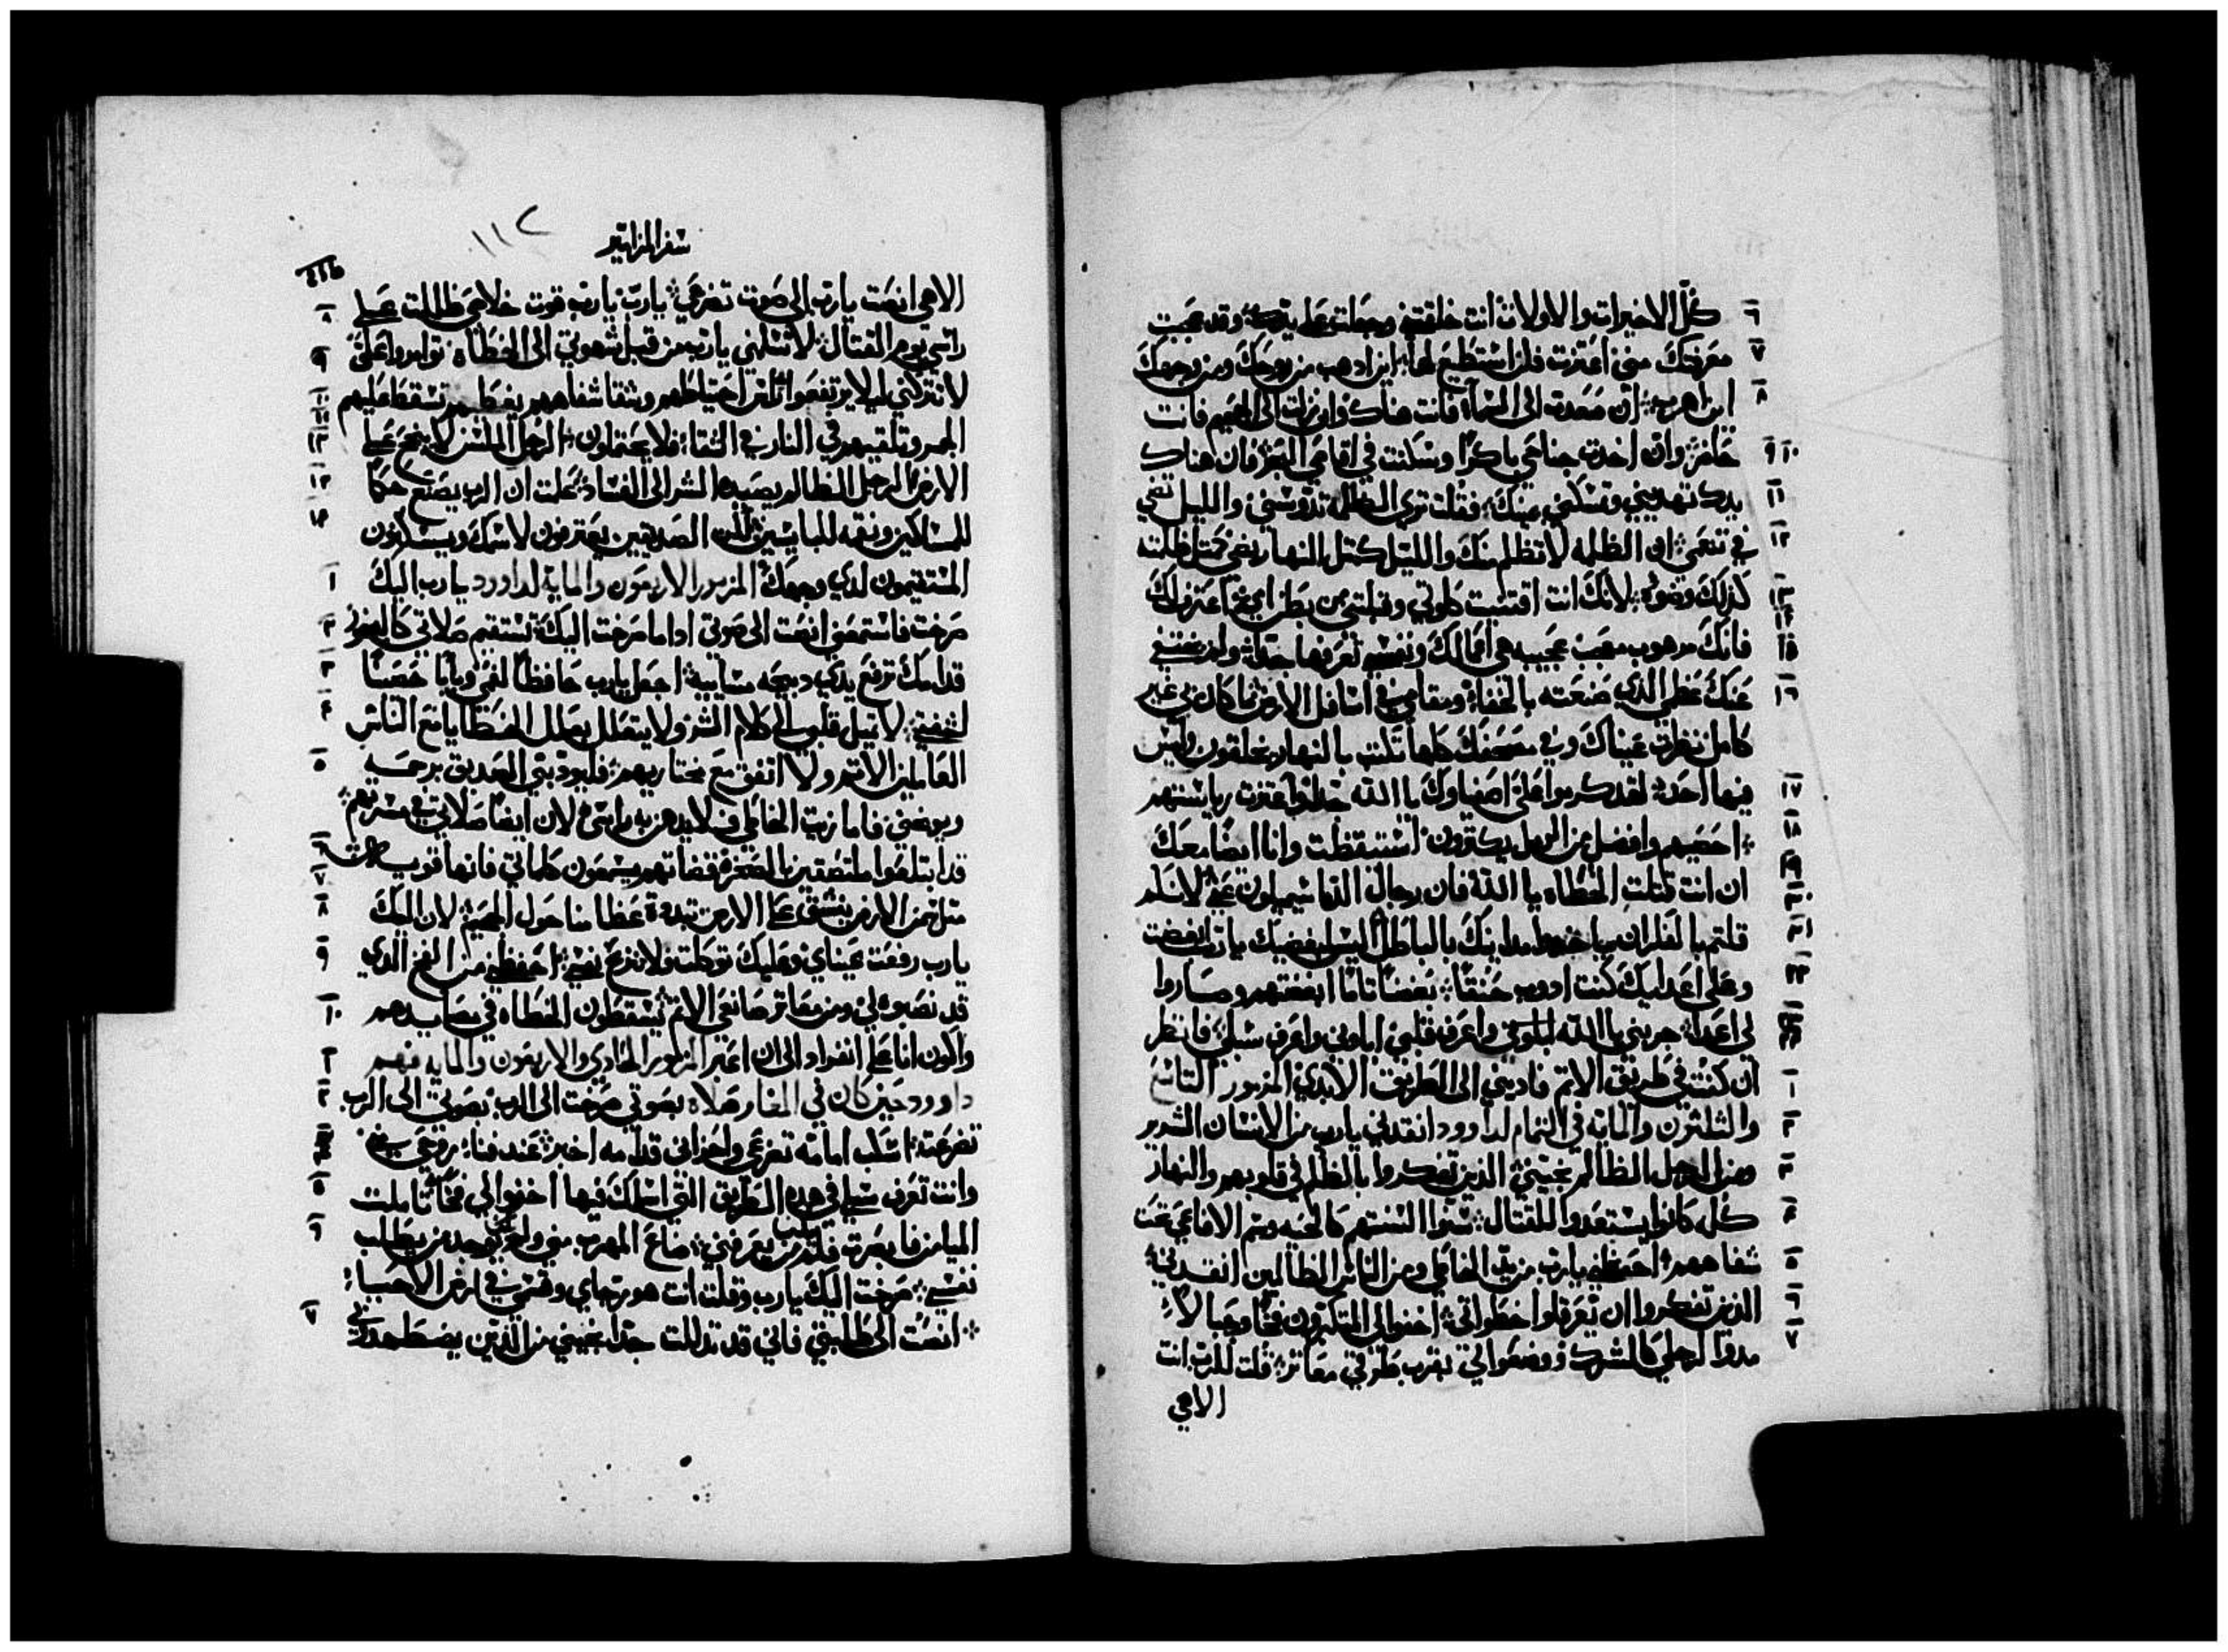 كل الاخيرات والاولات انت خلقتني وجعلت علي يدك وقد عجبت
معرفتك مني اعتزت فلن استطيع لها اين ادهب من روحك ومن وجهك
اين اهرب ان صعدت الى السماء فانت هناك وان نزلت الى الجحيم فانت
حاضر وان اخدت جناحي باكرا وسكنت في اقاصي البحر فان هناك
يدك تهديني وتمسكني يمينك فقلت تري الظلمه تدوسني والليل تضي
في تنعمي ان الظلمه لا تظلم منك والليل كمثل النهار يضي كمثل ظلمته
كذلك وضوه لانك انت اقتنيت كلوتي وقبلتني من بطن امي اعترف لك
فانك مرهوب معجب عجيبه هي اعمالك ونفسي تعرفها جدا ولم يختفي
عنك عظمي الذي صنعته بالخفاء ومقامي في اسافل الارض ما كان بي غير
كامل نظرت عيناك وفي مصحفك كلها تكتب بالنهار يخلقون وليس
فيها احد لقد كرموا علي اصفياوك يا الله جدا واعتزت رياستهم
احصيهم وافضل من الرمل يكثرون استيقظت وانا ايضا معك
ان انت قتلت الخطاه يا الله فان رجال الدما يميلون عني لانكم
قلتم بالفكران ياخدون مداينك بالباطل اليس مبغضيك يا رب ابغضت
وعلى اعدايك كنت ادوب حنقا بغضا تاما ابغضتهم وصاروا
لي اعدا جربني يا الله ابلوني واعرف قلبي اباوني واعرف سبلي فانظر
ان كنت في طريق الاتم فاديني الى الطريق الابدي المزمور التاسع
والثلثون والمايه في التمام لداوود انقدني يا رب من الانسان الشرير
ومن الرجل الظالم نجيني الذين تفكروا بالظلم في قلوبهم والنهار
كله كانوا يستعدوا للقتال سنوا السنتهم كالحيه وسم الافاعي تحت
شفاههم احفظني يا رب من يد الخاطي ومن الناس الظالمين انقدني
الذين تفكروا ان تعرقلوا خطواتي اخفوا لي المتكبرون فخا وحبالا
مدوا لرجلي كالشرك ووضعوا لي بقرب طرقي معاتر قلت للرب انت
الاهي
سفر المزامير
١١٢
الاهي انصت يا رب الى صوت تضرعي يا رب يا رب قوت خلاصي ظللت علي
راسي يوم القتال لا تسلمني يا رب من قبل شهوتي الى الخطاه توامروا علي
لا تتركني ليلا يرتفعوا راس احتياطهم وشقا شفاههم يغطيهم تسقط عليهم
الجمر وتلقيهم في النار في الشقا فلا يحتملون الرجل الملسن لا ينجح علي
الارض الرجل الظالم يصيده الشر الى الفساد علمت ان الرب يصنع حكما
للمساكين ونقمه للبايسين لكن الصديقين يعترفون لاسمك ويسكنون
المستقيمون لدي وجهك المزمور الاربعون والمايه لداوود يا رب اليك
صرخت فاستمعني انصت الى صوتي اداما صرخت اليك تستقيم صلاتي كالبخور
قدامك ترفع يدي دبيحه مسايية اجعل يا رب حافظا لفمي وبابا حصينا
لشفتي لا تميل قلبي الى كلام الشر ولا يتعلل بعلل الخطايا مع الناس
العاملين الاتم ولا اتفق مع مختاريهم فليودبني الصديق برحمه
ويوبخني فاما زيت الخاطي فلا يدهن به راسي لان ايضا صلاتي في مسرتهم
قد ابتلعوا ملتصقين بالصخره قضاتهم يسمعون كلماتي فانها قويت
مثل تخن الارض ينشق علي الارض تبددة عظامنا حول الجحيم لان اليك
يا رب رفعت عيناي وعليك توكلت ولا تنزع نفسي احفظني من الفخ الدي
قد نصبوه لي ومن معاتر صانعي الاتم يسقطون الخطاه في مصايدهم
واكون انا علي انفراد الى ان اعبر المزمور الحادي والاربعون والمايه فهم
داوود حين كان في المغار صلاه بصوتي صرخت الى الرب بصوتي الى الرب
تضرعت اسكب امامه تضرعي واحزاني قدامه اخبر عند فنا روحي مني
وانت تعرف سبلي في هده الطريق التي اسلك فيها اخفوا لي فخا تاملت
الميامن فابصرت فلم من يعرفني ضاع المهرب مني ولم يوجد من يطلب
نفسي صرخت اليك يا رب وقلت انت هو رجاي وقسمي في ارض الاحيا
انصت الى طلبتي فاني قد تدللت جدا نجيني من الذين يضطهدوني